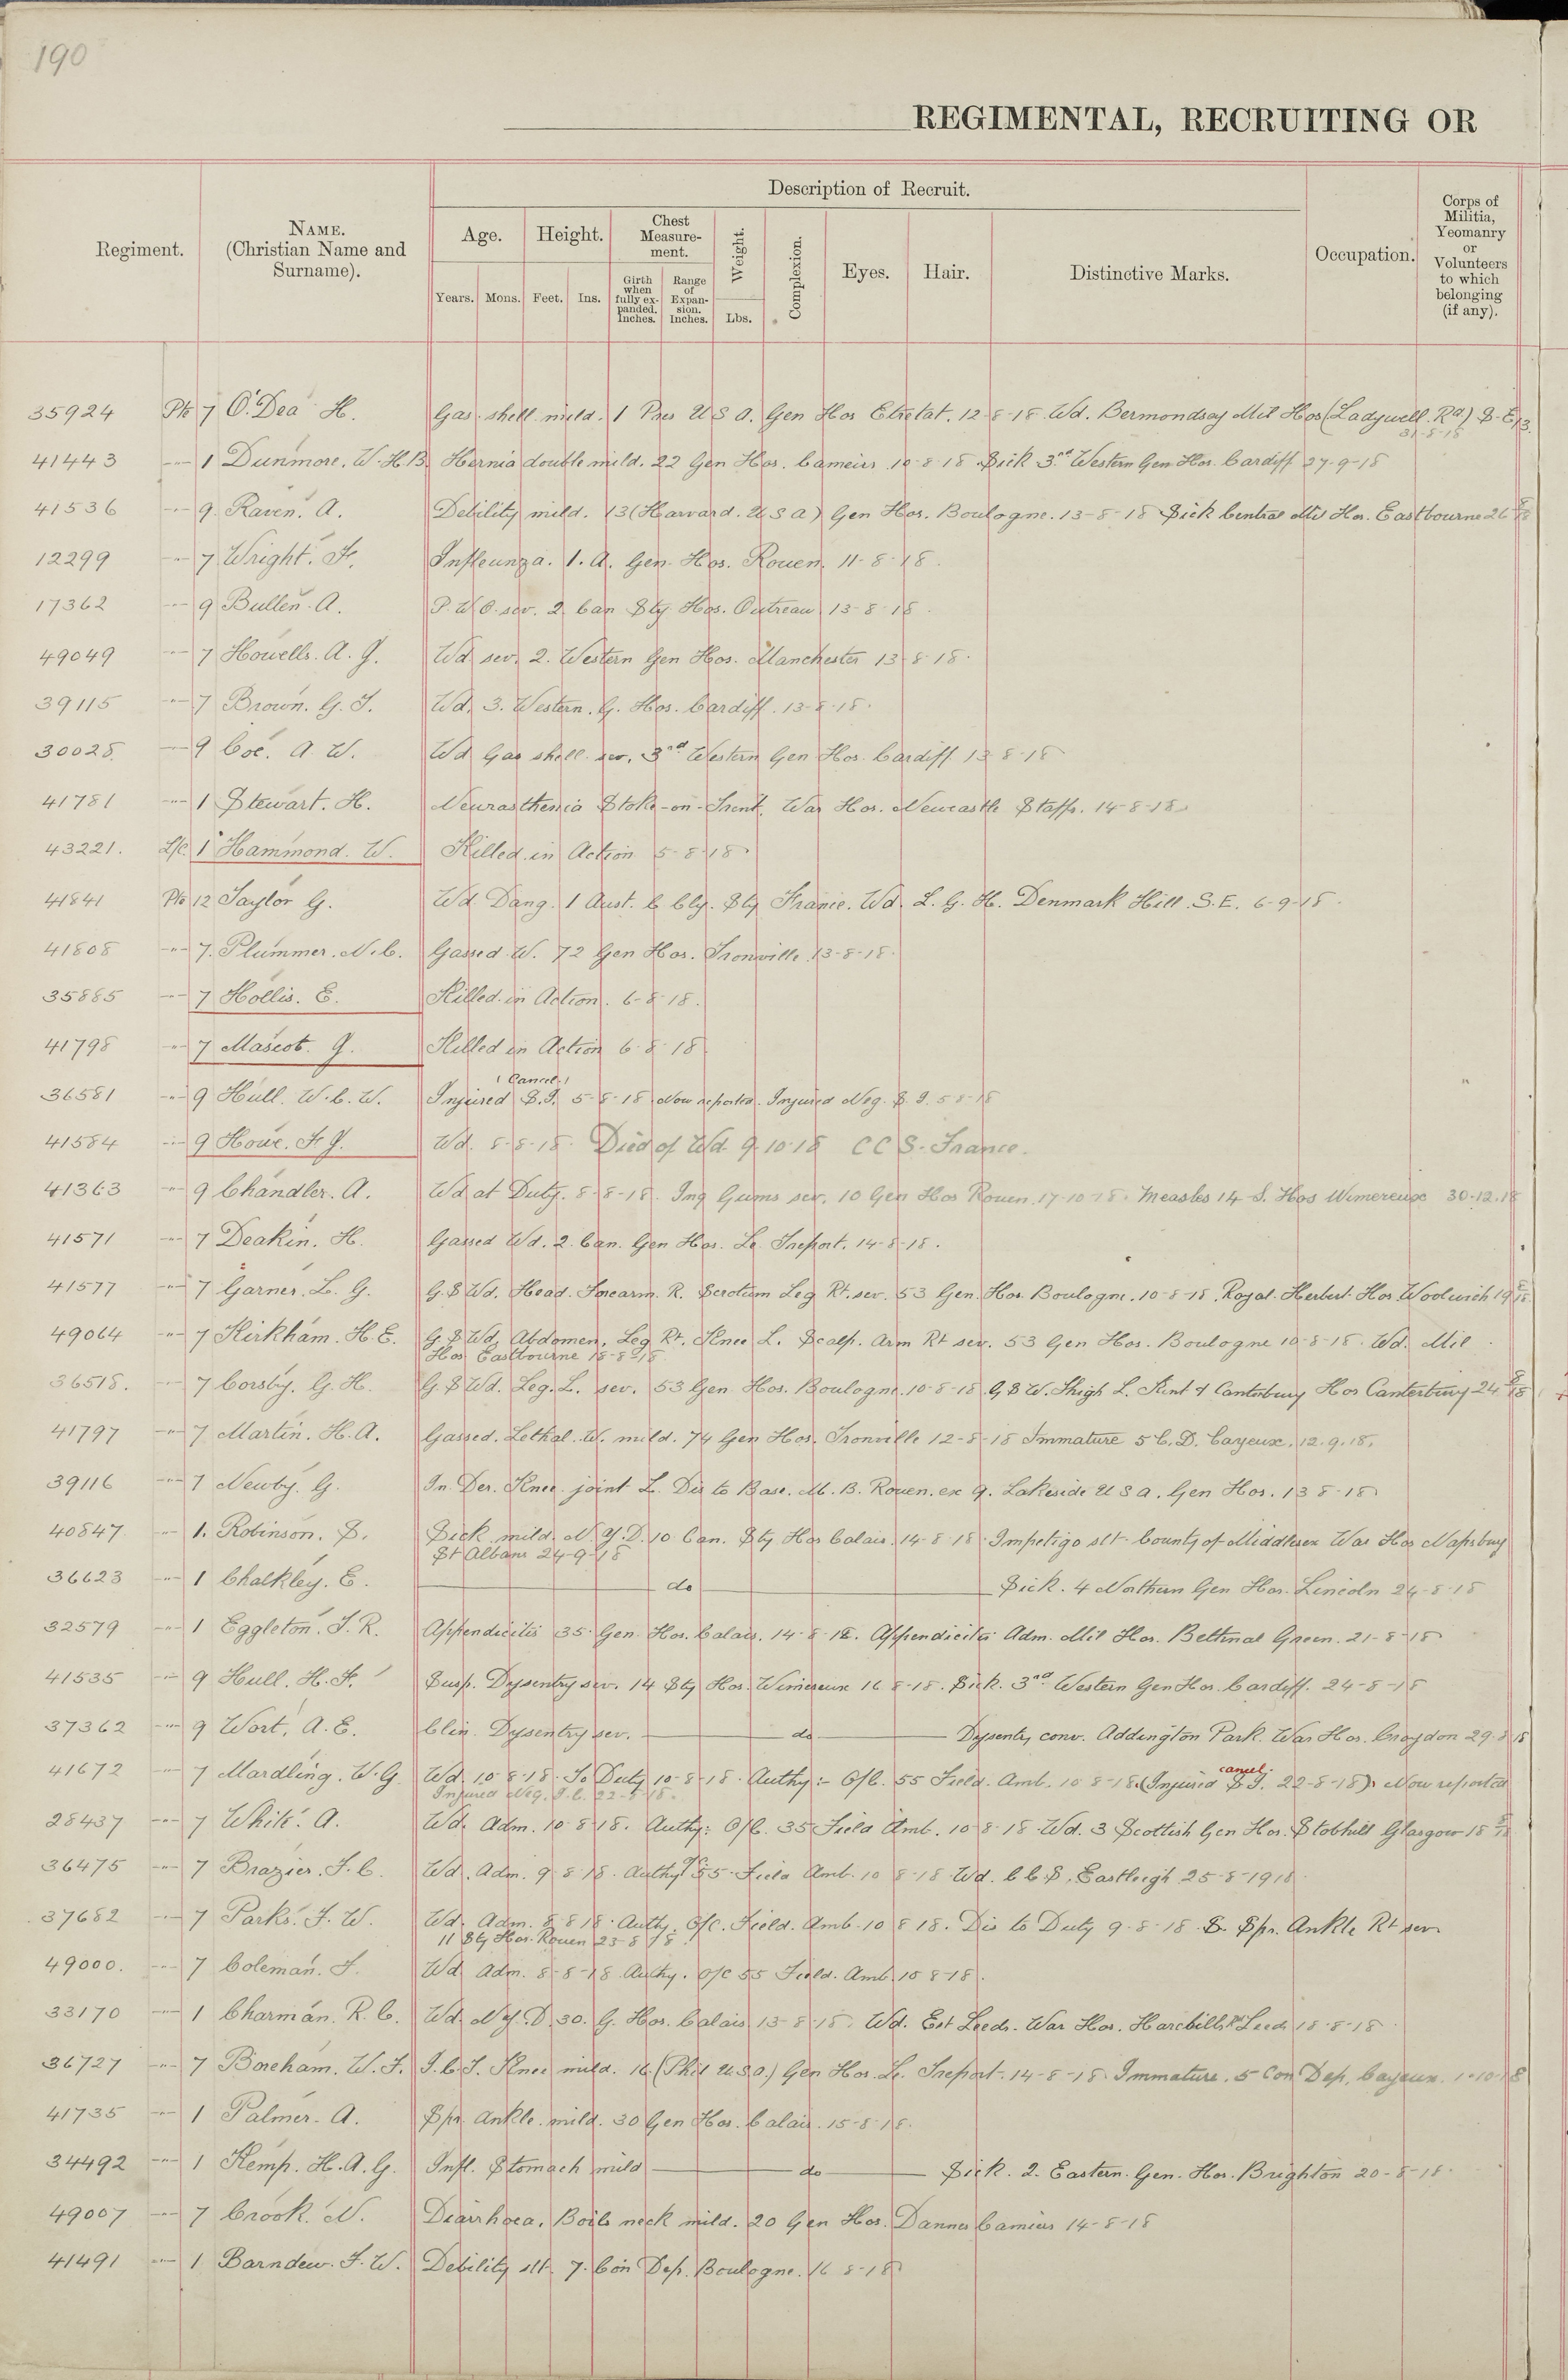 190
REGIMENTAL, RECRUITING OR
Description of Recruit.
Regiment.
NAME.
(Christian Name and
Surname).
Age.
Height.
Chest
Measure-
ment.
Weight.
Complexion.
Eyes.
Hair.
Distinctive Marks.
Occupation.
Corps of
Militia,
Yeomanry
or
Volunteers
to which
belonging
(if any).
Years.
Mons.
Feet.
Ins.
Girth
when
fully ex-
panded.
Inches.
Range
of
Expan-
sion.
Inches.
Lbs.
35924 Pte 7 O'Dea H. Gas shell mild. 1 Pres U S A. Gen Hos Etretat. 12-8-18 Wd. Bermondsey Mil Hos (Ladywell Rd) S.E.13.
31-8-18
41443 -"- 1 Dunmore. W.H.B. Hernia double mild. 22 Gen Hos. Camiers 10-8-18 Sick 3rd Western Gen Hos. Cardiff 27-9-18
41536 -"- 9. Raven. A. Debility mild. 13 (Harvard. U S A) Gen Hos. Boulogne. 13-8-18 Sick Central Mil Hos. Eastbourne 26 8/18
12299 -"- 7 Wright. F. Infleunza. 1. A. Gen. Hos. Rouen. 11-8-18.
17362 -"- 9 Bullen. A. P.U.O. sev. 2 Can Sty Hos. Outreau 13-8-18.
49049 -"- 7 Howells. A. J. Wd sev. 2. Western Gen Hos. Manchester 13-8-18.
39115 -"- 7 Brown. G. T. Wd. 3. Western. G. Hos. Cardiff. 13-8-18.
30028 -"- 9 Coe. A. W. Wd Gas shell sev. 3rd Western Gen Hos. Cardiff 13-8-18
41781 -"- 1 Stewart. H. Neurasthenia Stoke-on-Trent. War Hos. Newcastle Staffs. 14-8-18.
43221. L/c. 1 Hammond. W. Killed in Action 5-8-18
41841 Pte 12 Taylor G. Wd Dang. 1 Aust. C Clg. Stg France. Wd. L. G. H. Denmark Hill. S.E. 6-9-18.
41808 -"- 7. Plummer. N.C. Gassed W. 72 Gen Hos. Trouville 13-8-18.
35885 -"- 7 Hollis. E. Killed in Action. 6-8-18.
41798 -"- 7 Mascot. J. Killed in Action 6-8-18
(Cancel)
36581 -"- 9 Hull. W.C.W. Injured S.I. 5-8-18 Now reported. Injured Neg. S.I. 5-8-18
41584 -"- 9 Howe. F J. Wd. 8-8-18. Died of Wd. 9-10-18 CCS. France.
41363 -"- 9 Chandler. A. Wd at Duty. 8-8-18. Ing Gums sev. 10 Gen Hos Rouen. 17-10-18. Measles 14 S. Hos Wimereux 30.12.18
41571 -"- 7 Deakin. H. Gassed Wd. 2. Can. Gen Hos. Le Treport. 14-8-18.
41577 -"- 7 Garner. L. G. G.S Wd. Head. Forearm. R. Scrotum Leg Rt. sev. 53 Gen. Hos. Boulogne. 10-8-18. Royal Herbert. Hos Woolwich 19 8/18
49064 -"- 7 Kirkham. H.E. G.S Wd. Abdomen. Leg Rt. Knee L. Scalp. Arm Rt sev. 53 Gen Hos. Boulogne 10-8-18. Wd. Mil
Hos Eastbourne 18-8-18
36518. -"- 7 Corsby. G. H. G.S Wd. Leg. L. sev. 53 Gen Hos. Boulogne. 10-8-18 G.S W. Thigh L. Kent & Canterbury Hos Canterbury 24 8/18
41797 -"- 7 Martin. H.A. Gassed. Lethal W. mild. 74 Gen Hos. Trouville 12-8-18 Immature 5 C.D. Cayeux. 12.9.18.
39116 -"- 7 Newby. G. In Der. Knee joint L. Dis to Base. M.B. Rouen. ex 9. Lakeside U S A. Gen Hos. 13-8-18
40847 -"- 1. Robinson. S. Sick mild. N.Y.D. 10 Can. Sty Hos Calais. 14-8-18. Impetigo slt. County of Middlesex War Hos Napsbury
St Albans 24-9-18
36623 -"- 1 Chalkley. E. do Sick. 4 Northern Gen Hos. Lincoln 24-8-18
32579 -"- 1 Eggleton. J. R. Appendicitis 35 Gen. Hos. Calais. 14-8-18. Appendicitis Adm. Mil Hos. Bethnal Green. 21-8-18
41535 -"- 9 Hull. H. F. Susp. Dysentry sev. 14 Sty Hos. Wimereux 16-8-18. Sick. 3rd Western Gen Hos. Cardiff. 24-8-18
37362 -"- 9 Wort. A. E. Clin. Dysentry sev. do Dysentry conv. Addington Park. War Hos. Croydon 29-8-18
cancel
41672 -"- 7 Mardling. W.G. Wd. 10-8-18. To Duty 10-8-18. Authy:- O/C. 55 Field. Amb. 10-8-18. (Injured S.I. 22-8-18). Now reported
Injured Neg. 22-8-18.
28437 -"- 7 White. A. Wd. Adm. 10-8-18. Authy: O/C. 35 Field Amb. 10-8-18 Wd. 3 Scottish Gen Hos. Stobhill Glasgow 18 8/18
36475 -"- 7 Brazier. J. C. Wd. Adm. 9-8-18. Authy O/C 55 Field Amb. 10-8-18 Wd. C.C.S. Eastleigh 25-8-1918
37682 -"- 7 Parks. F. W. Wd. Adm. 8-8-18. Authy. O/C. Field. Amb. 10-8-18. Dis to Duty 9-8-18. S. Spr. Ankle Rt sev.
11 Sty Hos. Rouen 23-8-18.
49000. -"- 7 Coleman. F. Wd Adm. 8-8-18 Authy. O/C 55 Field. Amb. 10-8-18.
33170 -"- 1 Charman. R. C. Wd. N.Y.D. 30. G. Hos. Calais 13-8-18. Wd. Est Leeds. War Hos. Harehills Rd Leeds 18-8-18
36727 -"- 7 Boreham. W. J. I.C.T. Knee mild. 16 (Phil U.S.A.) Gen Hos. Le Treport. 14-8-18. Immature. 5 Con Dep. Cayeux. 1-10-18
41735 -"- 1 Palmer. A. Spr. Ankle. mild. 30 Gen Hos. Calais. 15-8-18.
34492 -"- 1 Kemp. H.A.G. Infl. Stomach mild do Sick. 2. Eastern. Gen. Hos. Brighton 20-8-18.
49007 -"- 7 Crook. N. Diarrhoea, Boils neck mild. 20 Gen Hos. Dannes Camiers 14-8-18
41491 -"- 1 Barndew. F. W. Debility slt. 7. Con Dep. Boulogne. 16-8-18